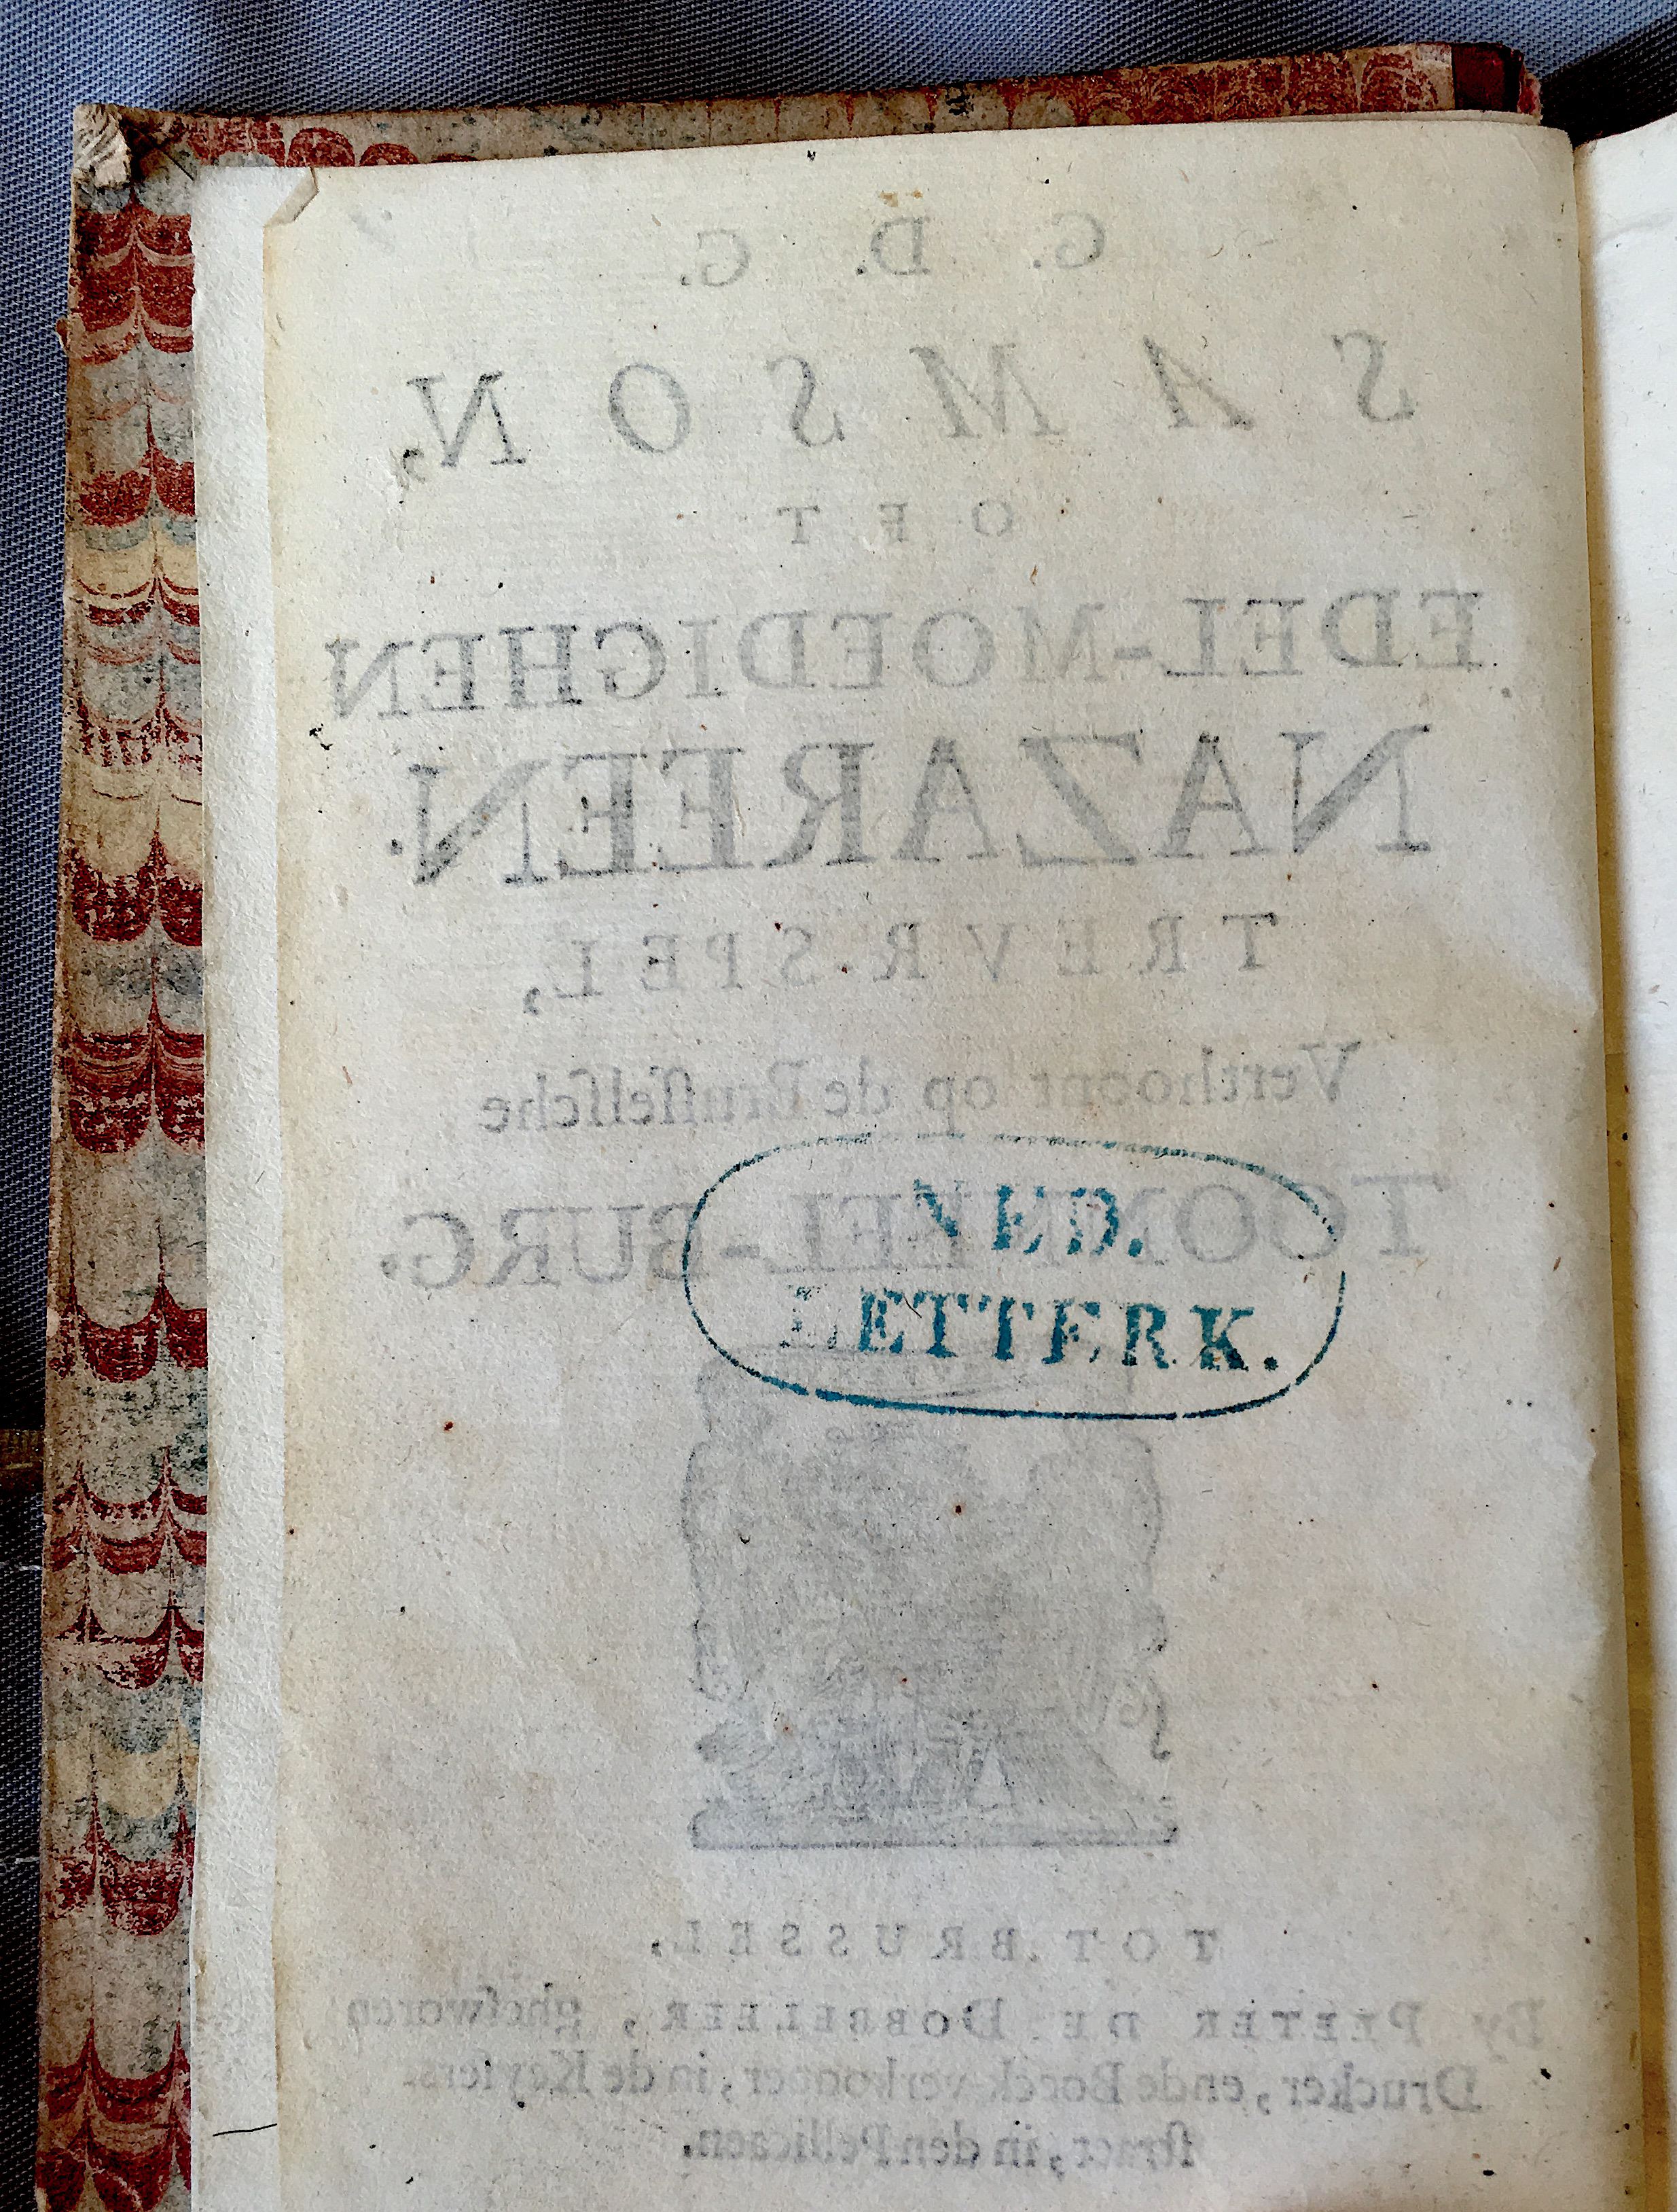 C. D. G.
SAMSON,
OFT
EDEL-MOEDIGHEN
NAZAREEN.
TREVR-SPEL,
Verthoont op de Brusselsche
TOONNEEL-BURG.
NED.
LETTERK.
TOT BRUSSEL,
By PEETER DE DOBBELEER, ghesworen
Drucker, ende Boeck-verkooper, in de Keysers-
straet, in den Pellicaen.